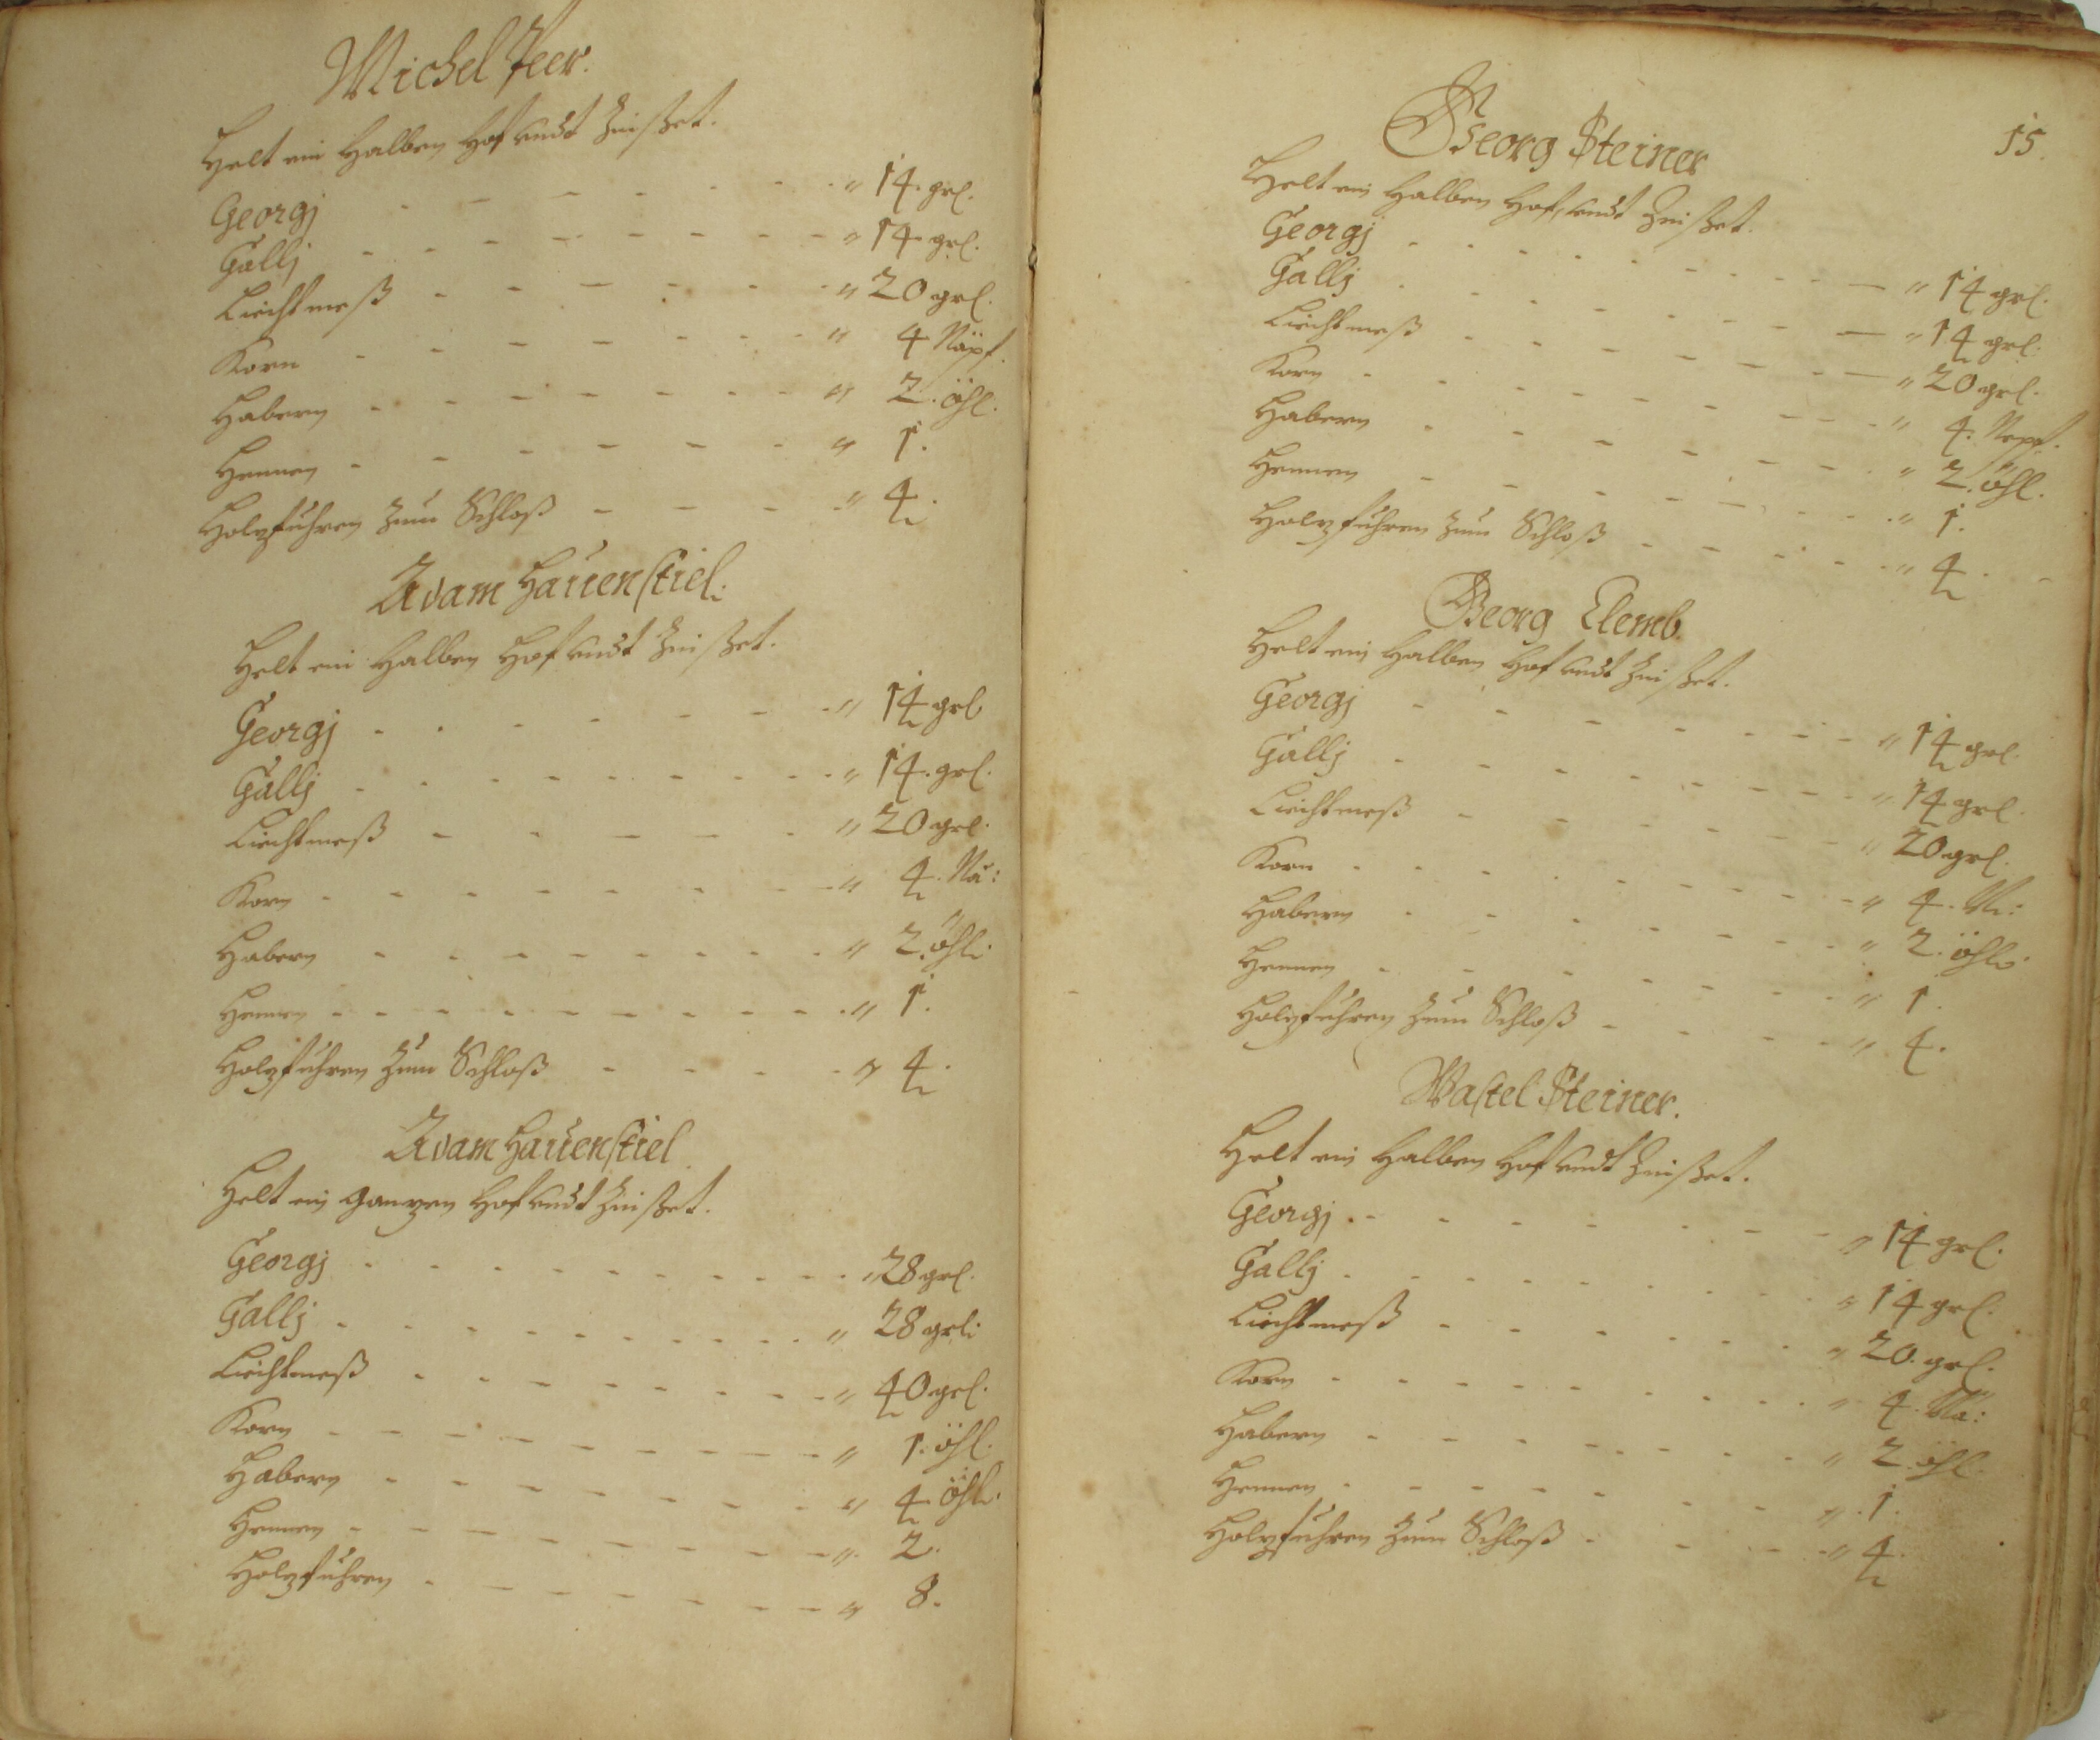 Michel Peer.
Helt ein Halben Hof undt Zinßet.
Georgj - - - - - - - " 14. grl.
Gallj - - - - - - - " 14. grl.
Liechtmeß - - - - - - " 20 grl.
Korn - - - - - - - " 4 Näpf.
Habern - - - - - - - " 2. öhl.
Hennen - - - - - - " 1.
Holzfuhren zum Schloß - - - - " 4.
Adam Hauenstiel.
Helt ein Halben Hof undt Zinßet.
Georgj - - - - - - - " 14 grl
Gallj - - - - - - - - " 14. grl.
Liechtmeß - - - - - " 20 grl.
Korn - - - - - - - " 4. Nä:
Habern - - - - - - - " 2. öhl:
Hennen - - - - - - - - " 1.
Holzfuhren zum Schloß - - - - " 4.
Adam Hauenstiel.
Helt ein Ganzen Hof undt Zinßet.
Georgj - - - - - - - - " 28 grl.
Gallj - - - - - - - - " 28 grl:
Liechtmeß - - - - - - - " 40 grl.
Korn - - - - - - - - " 1. öhl.
Habern - - - - - - - " 4. öhl.
Hennen - - - - - - - " 2.
Holzfuhren - - - - - - " 8.
15.
Georg Steiner
Helt ein Halben Hof, undt Zinßet.
Georgj - - - - - - - " 14 grl.
Gallj - - - - - - - " 14 grl.
Liechtmeß - - - - - - " 20 grl.
Korn - - - - - - - " 4. Nepf.
Habern - - - - - - - " 2. öhl.
Hennen - - - - - - - " 1.
Holzfuhren zum Schloß - - - - " 4.
Georg Clemb.
Helt ein Halben Hof undt Zinßet.
Georgj - - - - - - - " 14 grl.
Gallj - - - - - - - " 14 grl.
Liechtmeß - - - - - - " 20 grl.
Korn - - - - - - - - " 4. Nä:
Habern - - - - - - - " 2. öhl.
Hennen - - - - - - - " 1.
Holzfuhren zum Schloß - - - - " 4.
Wastel Steiner.
Helt ein Halben Hof undt Zinßet.
Georgj - - - - - - - " 14 grl.
Gallj - - - - - - - - " 14 grl.
Liechtmeß - - - - - - " 20. grl.
Korn - - - - - - - - " 4. Nä:
Habern - - - - - - - " 2. öhl.
Hennen - - - - - - - " 1.
Holzfuhren zum Schloß - - - - " 4.